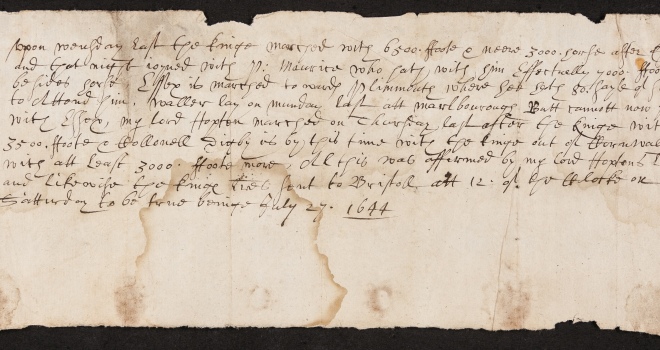 Upon wensday last the kinge marched with 6500. ffoote & neere 3000. horse after
and that night ioyned with P: Maurice who hath with him Effectually 7000. ffoote
besides horse Essex is marched towards Plimmouth where hee hath 80. sayle of
to Attend him. Waller lay on munday last att marlbourough Butt cannott now
with Essex, my lord Hopton marched on Thursday last after the kinge with
3500. ffoote & Collonell Digby is by this time with the kinge out of Cornwall
with att least 3000. ffoote more, All this was affirmed by my lord Hoptons
and likewise the kings sent to Bristoll att 12. of the Clocke on
Satturday to be true beinge July 27. 1644